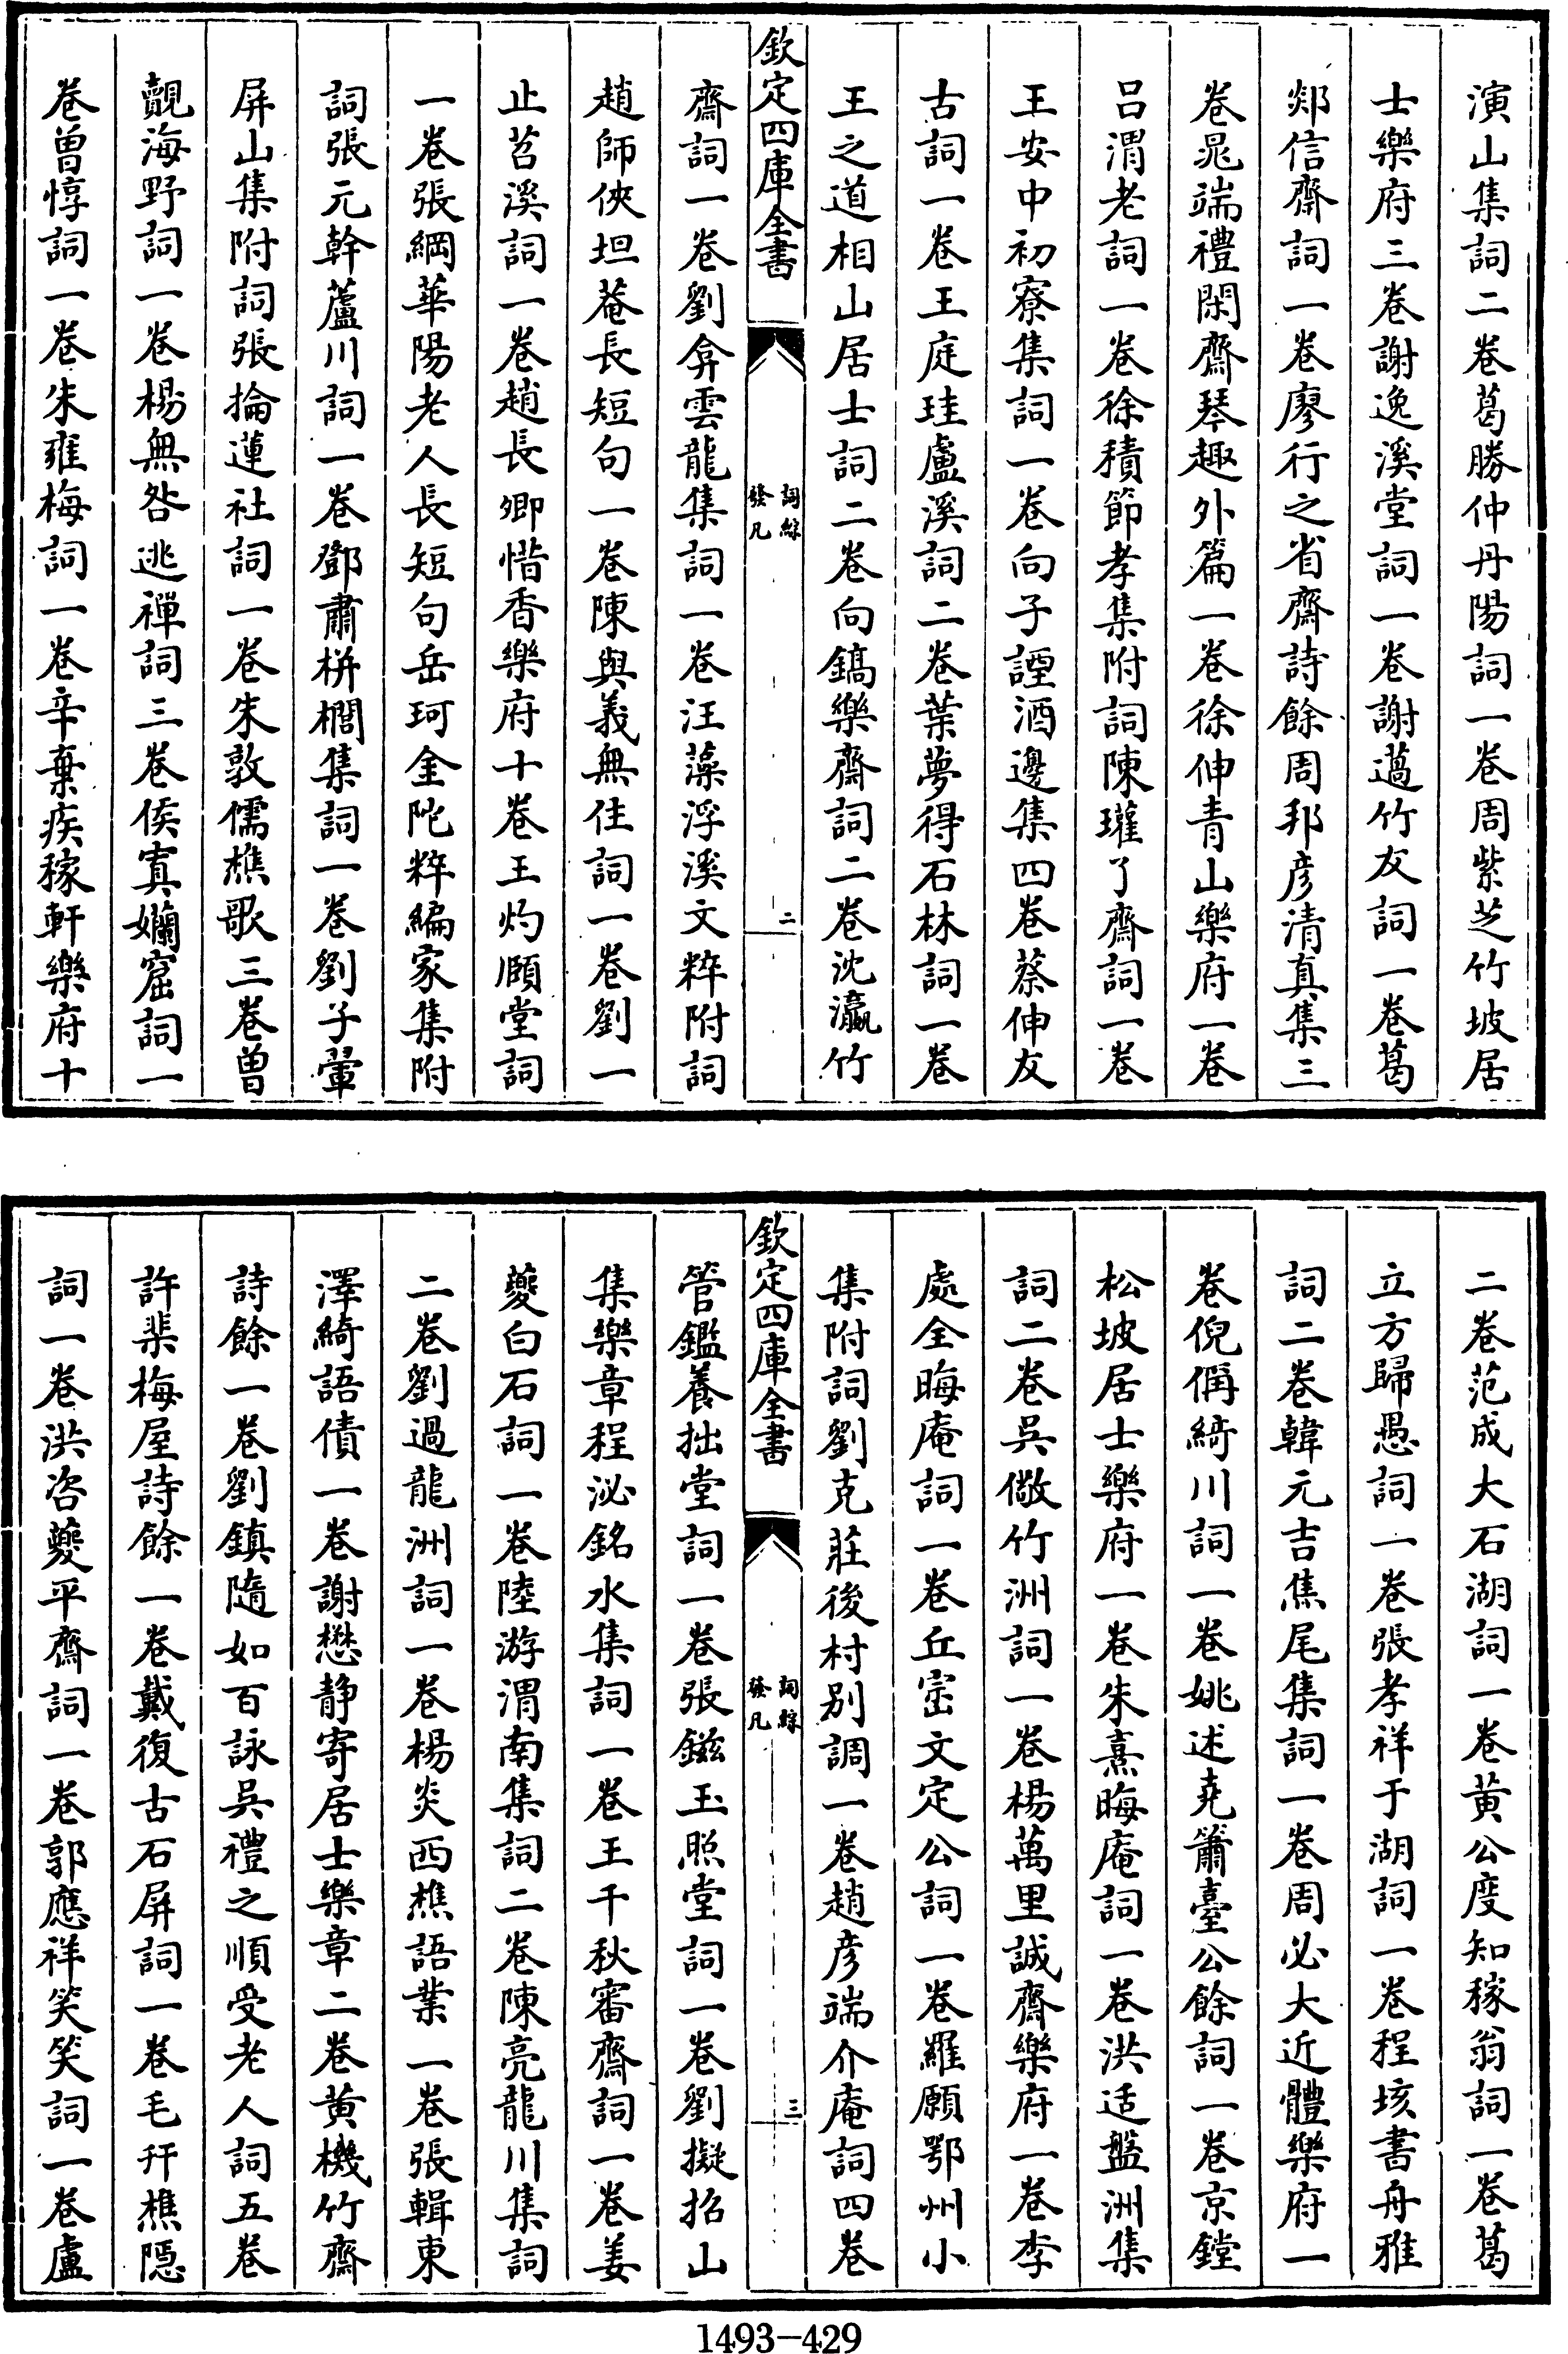 演山集詞二卷葛勝仲丹陽詞一卷周紫芝竹坡居
士樂府三卷謝逸溪堂詞一卷謝薖竹友詞一卷葛
郯信齋詞一卷廖行之省齋詩餘周邦彥清真集三
卷晁端禮閑齋琴趣外篇一卷徐伸青山樂府一卷
吕渭老詞一卷徐積節孝集附詞陳瓘了齋詞一卷
王安中初寮集詞一卷向子諲酒邊集四卷蔡伸友
古詞一卷王庭珪盧溪詞二卷葉夢得石林詞一卷
王之道相山居士詞二卷向鎬樂齋詞二卷沈瀛竹
欽定四庫全書
詞綜
發凡
二
齋詞一卷劉弇雲龍集詞一卷汪藻浮溪文粹附詞
趙師俠坦菴長短句一卷陳與義無住詞一卷劉一
止苕溪詞一卷趙長卿惜香樂府十卷王灼頤堂詞
一卷張綱華陽老人長短句岳珂金陀粹編家集附
詞張元幹蘆川詞一卷鄧肅栟櫚集詞一卷劉子翬
屏山集附詞張掄蓮社詞一卷朱敦儒樵歌三卷曾
覿海野詞一卷楊無咎逃禪詞三卷侯寘嬾窟詞一
卷曾惇詞一卷朱雍梅詞一卷辛棄疾稼軒樂府十
二卷范成大石湖詞一卷黃公度知稼翁詞一卷葛
立方歸愚詞一卷張孝祥于湖詞一卷程垓書舟雅
詞二卷韓元吉焦尾集詞一卷周必大近體樂府一
卷倪偁綺川詞一卷姚述堯簫臺公餘詞一卷京鏜
松坡居士樂府一卷朱熹晦庵詞一卷洪适盤洲集
詞二卷吳儆竹洲詞一卷楊萬里誠齋樂府一卷李
處全晦庵詞一卷丘崈文定公詞一卷羅願鄂州小
集附詞劉克莊後村别調一卷趙彥端介庵詞四卷
欽定四庫全書
詞綜
發凡
三
管鑑養拙堂詞一卷張鎡玉照堂詞一卷劉擬招山
集樂章程泌銘水集詞一卷王千秋審齋詞一卷姜
夔白石詞一卷陸游渭南集詞二卷陳亮龍川集詞
二卷劉過龍洲詞一卷楊炎西樵語業一卷張輯東
澤綺語債一卷謝懋静寄居士樂章二卷黃機竹齋
詩餘一卷劉鎮隨如百詠吳禮之順受老人詞五卷
許棐梅屋詩餘一卷戴復古石屏詞一卷毛幵樵隠
詞一卷洪咨夔平齋詞一卷郭應祥笑笑詞一卷盧
1493-429